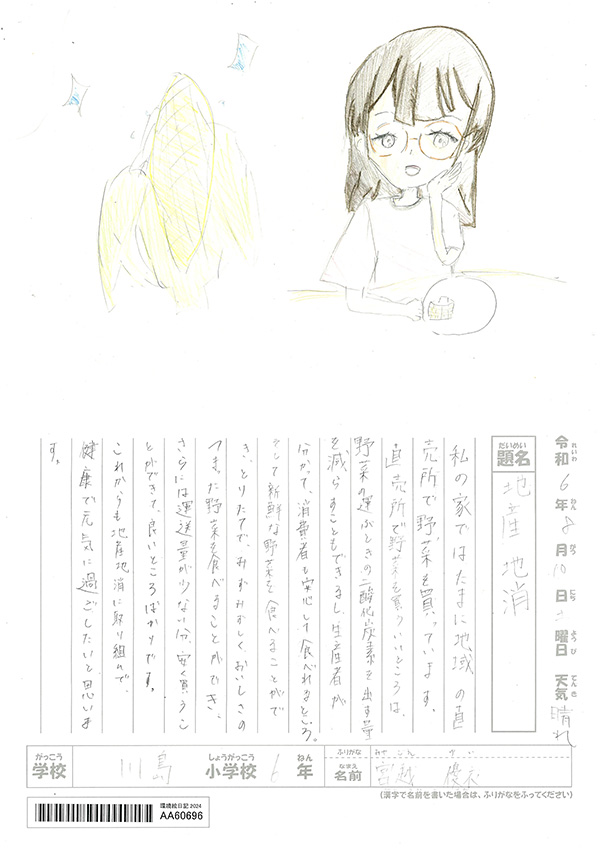 令和6年8月10日 曜日 天気 晴れ
れいわ ねん がつ にち ようび てんき
だいめい
題名 地産地消
私の家ではたまに地域の直
売所で野菜を買っています。
直売所で野菜を買ういいところは、
野菜の運ぶときの二酸化炭素を出す量
を減らすこともできるし、生産者が
分かって、消費者も安心して食べれるところ。
そして新鮮な野菜を食べることがで
き、とりたてで、みずみずしくおいしさの
つまった野菜を食べることができ、
さらには運送量が少ない分、安く買うこ
とができて、良いところばかりです。
これからも地産地消に取り組んで、
健康で元気に過ごしたいと思いま
す。
がっこう しょうがっこう ねん
学校 川島 小学校 6年
ふりがな
なまえ
名前 宮越
(漢字で名前を書いた場合は、ふりがなをふってください)
環境絵日記 2024
AA60696